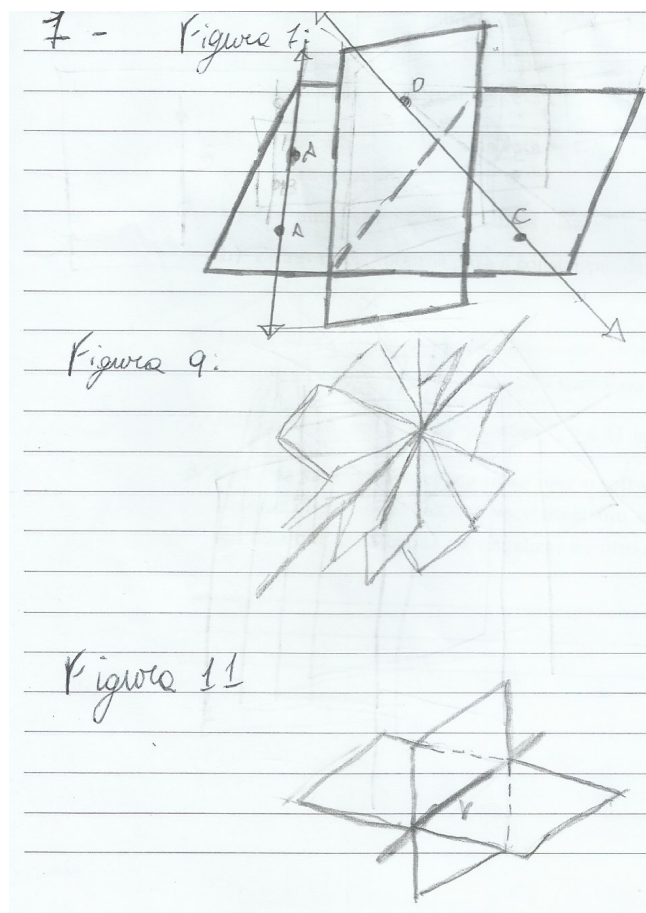 7 -
Figura 7:
D
A
A
C
Figura 9:
Figura 11
r